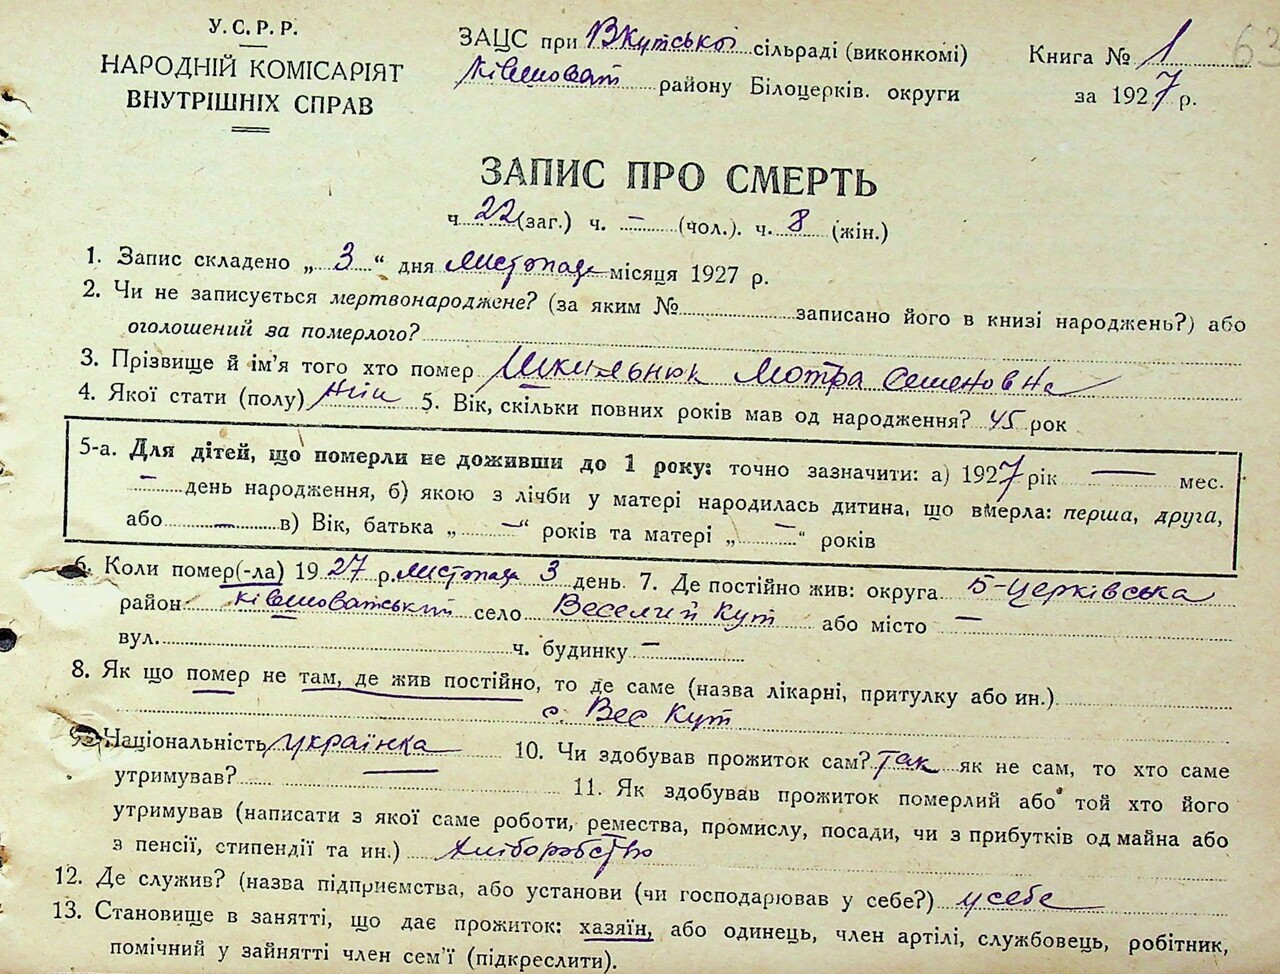 У.С.Р.Р.
НАРОДНІЙ КОМІСАРІЯТ
ВНУТРІШНІХ СПРАВ
ЗАЦС при Вкутській сільраді (виконкомі)
Ківшоват району Білоцерків. округи
Книга № 1
за 1927 р.
63
ЗАПИС ПРО СМЕРТЬ
ч. 22 (заг.) ч. – (чол.). ч. 8 (жін.)
1. Запис складено „ 3 “ дня листопада місяця 1927 р.
2. Чи не записується мертвонароджене? (за яким № записано його в книзі народжень?) або
оголошений за померлого?
3. Прізвище й ім'я того хто помер Шкильнюк Мотра Семеновна
4. Якої стати (полу) жін 5. Вік, скільки повних років мав од народження? 45 рок
5-а. Для дітей, що померли не доживши до 1 року: точно зазначити: а) 1927 рік — мес.
– день народження, б) якою з лічби у матері народилась дитина, що вмерла: перша, друга,
або – в) Вік, батька „ – “ років та матері „ – “ років
6. Коли помер(-ла) 1927 р. листопада 3 день. 7. Де постійно жив: округа Б-Церківська
район Ківшоватський село Веселий Кут або місто –
вул. ч. будинку –
8. Як що помер не там, де жив постійно, то де саме (назва лікарні, притулку або ин.)
с. Вес Кут
9. Національність українка 10. Чи здобував прожиток сам? так як не сам, то хто саме
утримував? 11. Як здобував прожиток померлий або той хто його
утримував (написати з якої саме роботи, ремества, промислу, посади, чи з прибутків од майна або
з пенсії, стипендії та ин.) хліборобство
12. Де служив? (назва підприємства, або установи (чи господарював у себе?) у себе
13. Становище в занятті, що дає прожиток: хазяїн, або одинець, член артілі, службовець, робітник,
помічний у зайнятті член сем'ї (підкреслити).